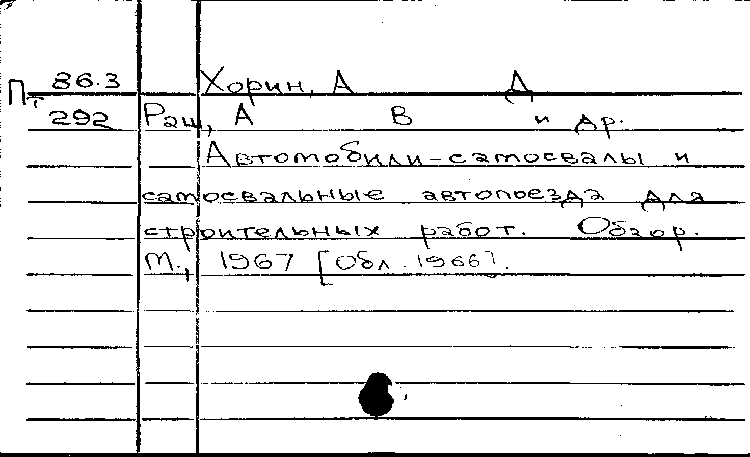 86.3 Хорин, А Д
Пт
292 Рац, А В и др.
Автомобили-самосвалы и
самосвальные автопоезда для
строительных работ. Обзор.
М., 1967 [Обл. 1966].